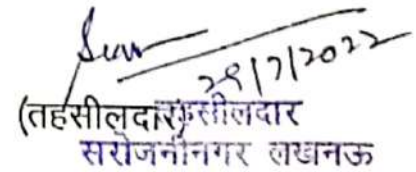 29/7/2022
(तहसीलदार) तहसीलदार
सरोजनीनगर लखनऊ